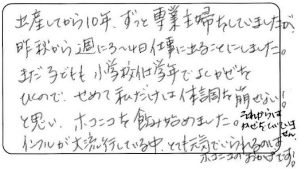 出産してから10年、ずっと専業主婦をしていましたが、
昨秋から週に3〜4日仕事に出ることにしました。
まだ子どもも小学校低学年でよくかぜを
ひくので、せめて私だけは体調を崩せない!
と思い、ホコニコを飲み始めました。
それからは
かぜをひいていま
せん。
インフルが大流行している中、とても元気でいられるのは
ホコニコのおかげです!